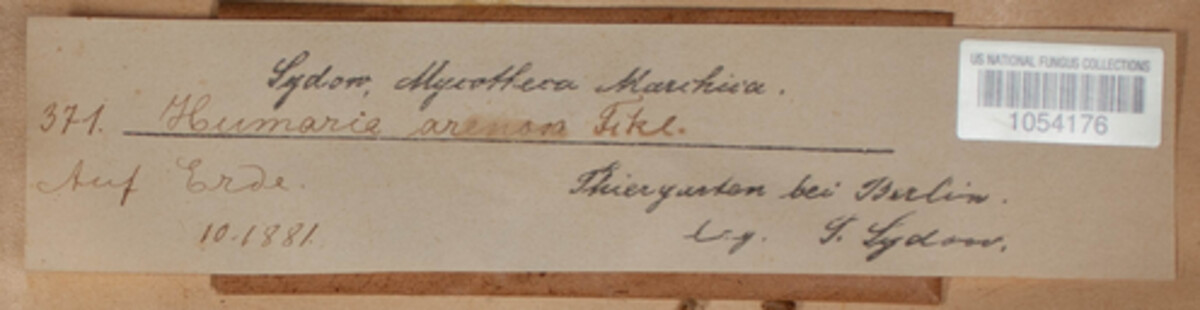 Sydow, Mycotheca Marchica.
371. Humaria arenosa Fckl.
Auf Erde. Thiergarten bei Berlin.
10.1881. leg. P. Sydow.
US NATIONAL FUNGUS COLLECTIONS
1054176